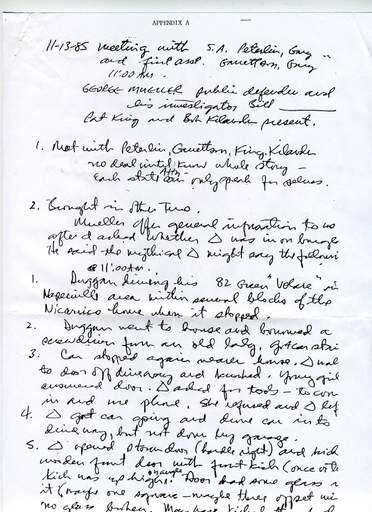 APPENDIX A
11-13-85 meeting with S.A. Peterlin, Gary
and first asst. Garretson, Gary
11:00 Am.
GEORGE MUELLER public defender and
his investigator Bill
Pat King and Bob Kilander present.
1. Met with Peterlin, Garretson, King, Kilander
no deal until know whole story -
Each state's Atty can only speak for selves.
2. Brought in other two.
Mueller offer general information to us
after I asked whether Δ was in on burglary
He said the mythical Δ might say the following
@ 11:00 Am.
1. Duggan driving his 82 Green "Volare" in
Naperville area within several blocks of the
Nicarico home when it stopped.
2. Duggan went to house and borrowed a
screwdriver from an old lady. Got car star
3. Car stopped again nearer house. Δ wal
to door off driveway and knocked. Young girl
answered door. Δ asked for tools - to com
in and use phone. She refused and Δ lef
4. Δ got car going and drove car into
driveway, but not in garage.
5. Δ opened storm door (handle right) and kick
wooden front door with foot kick (once
kick was up higher. Door had some glass
it (maybe one square - maybe three offset
no glass broken.